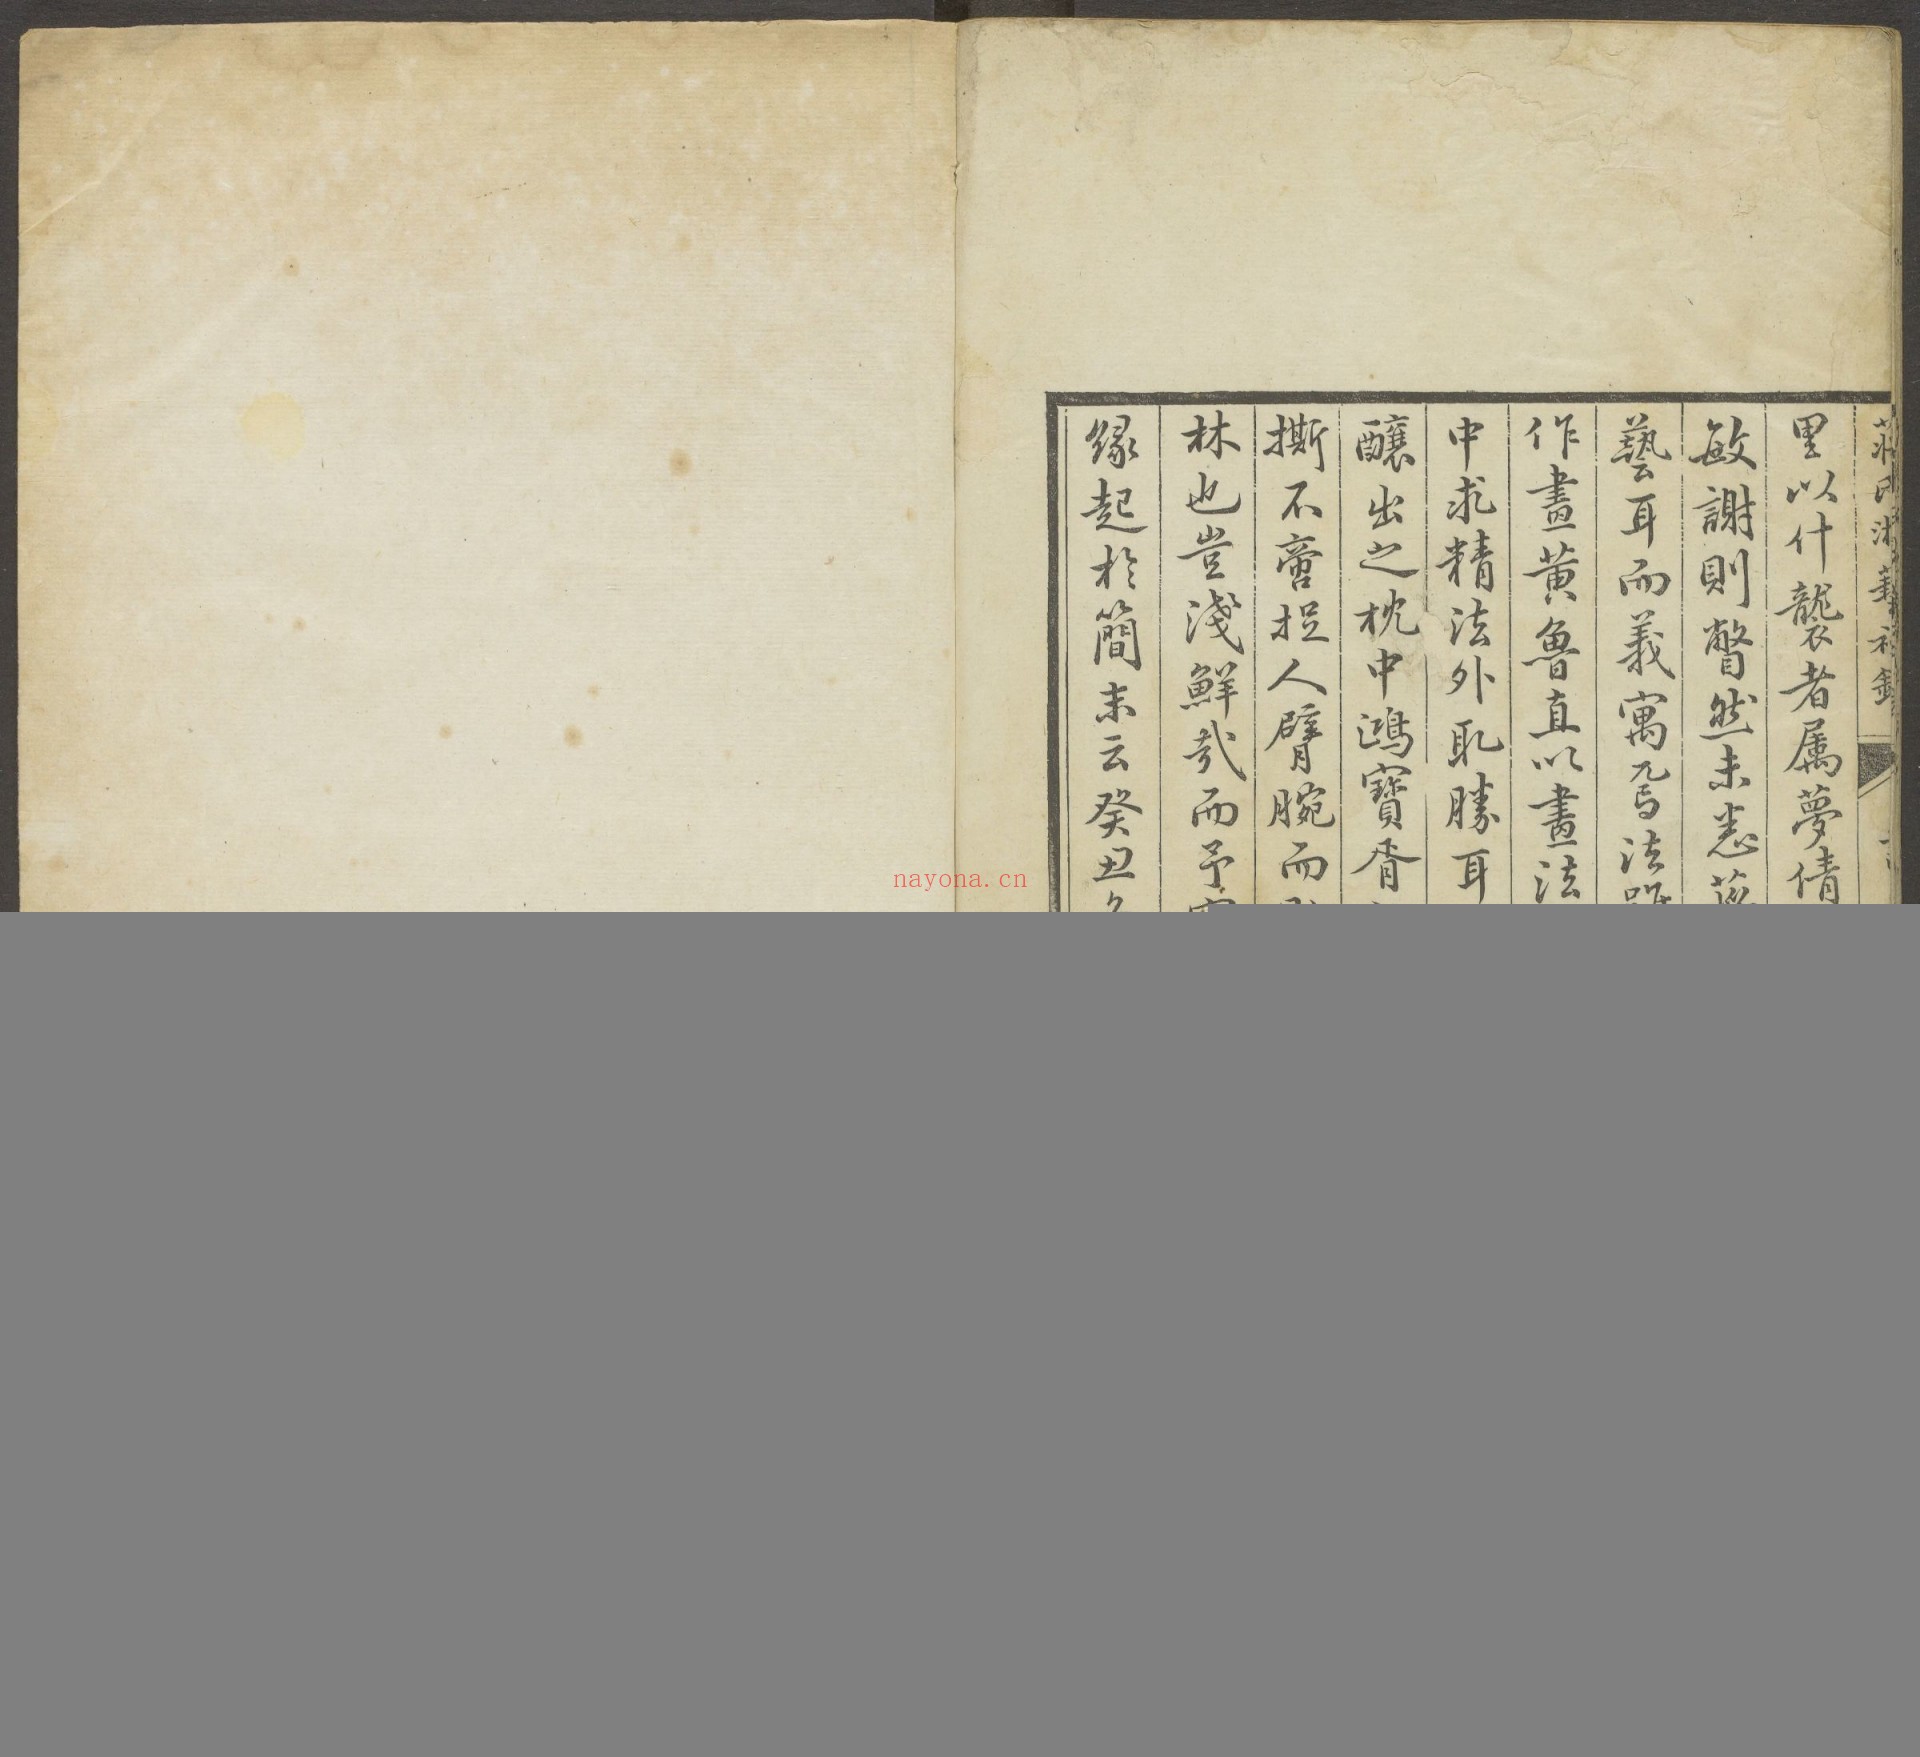 里以什襲者属夢倩
敏謝則瞥然未悉
藝耳而義寓焉法
作畫黄魯直以畫法
中求精法外取勝耳
醸出之枕中鴻寶胥
撕不啻捉人臂腕而
林也豈淺鮮哉而予
縁起於簡末云癸丑
nayona.cn